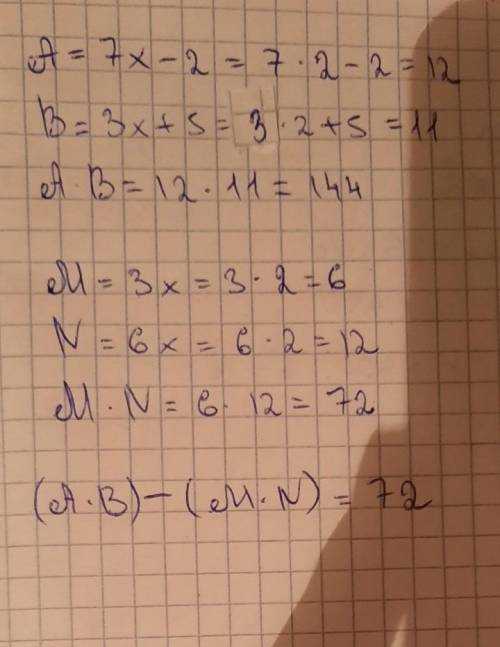 A = 7x - 2 = 7 · 2 - 2 = 12
B = 3x + 5 = 3 · 2 + 5 = 11
A · B = 12 · 11 = 144
M = 3x = 3 · 2 = 6
N = 6x = 6 · 2 = 12
M · N = 6 · 12 = 72
(A · B) - (M · N) = 72